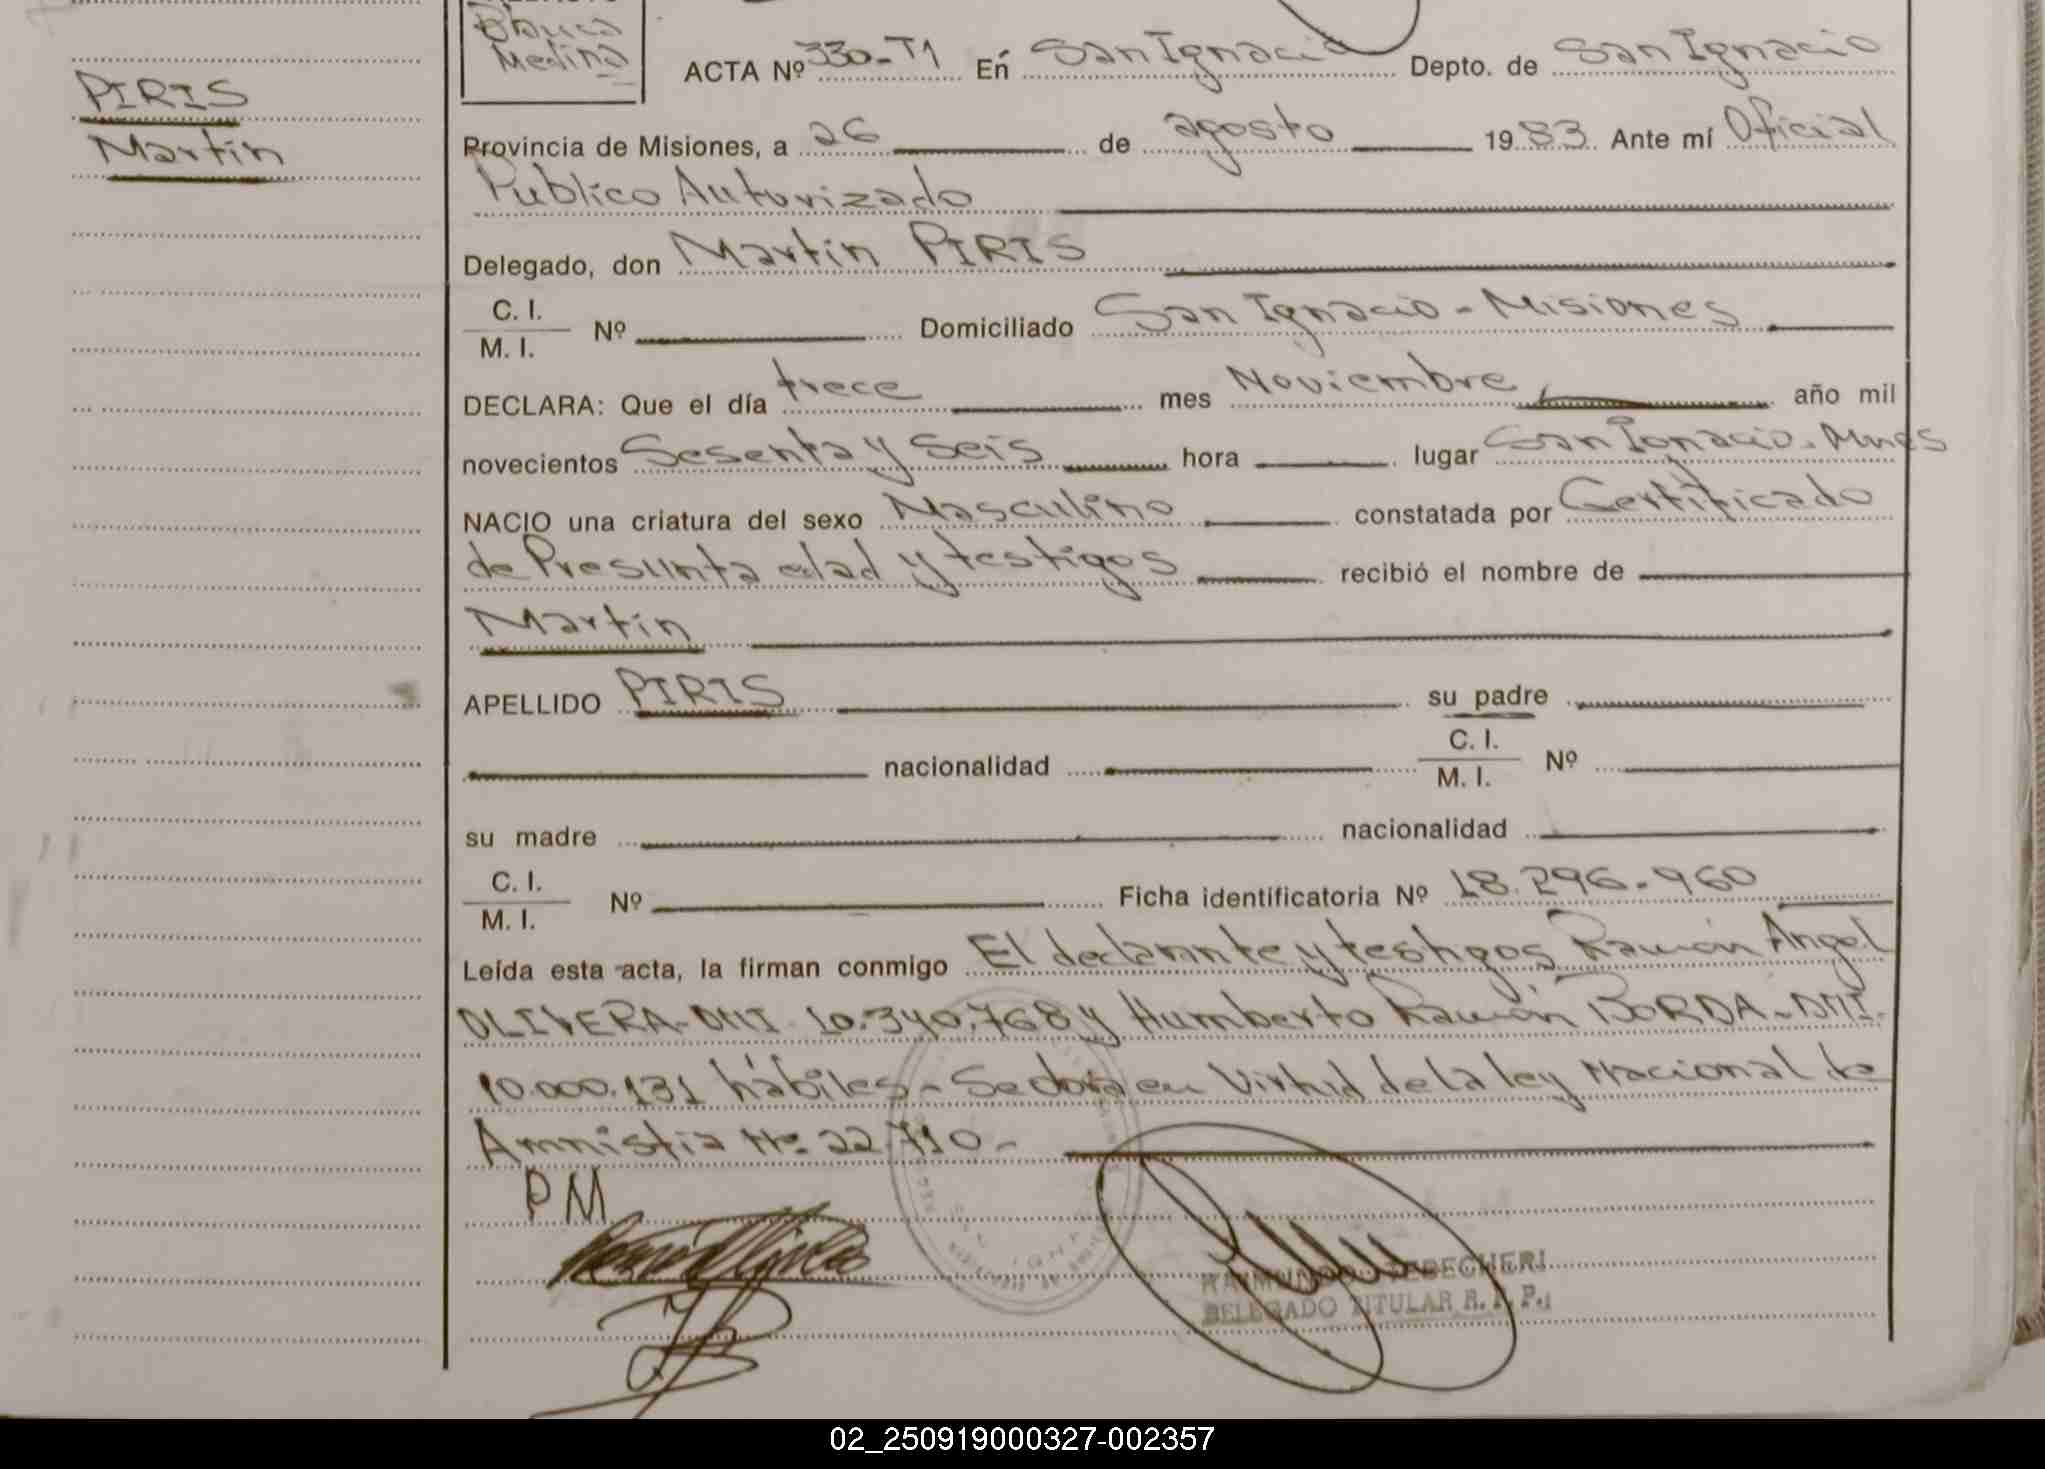 Blanca
Medina
PIRIS
Martín
ACTA Nº 330-T1 En San Ignacio Depto. de San Ignacio
Provincia de Misiones, a 26 de agosto 1983. Ante mí Oficial
Publico Autorizado
Delegado, don Martín PIRIS
C. I.
M. I. Nº Domiciliado San Ignacio - Misiones
DECLARA: Que el día trece mes Noviembre año mil
novecientos Sesenta y Seis hora lugar San Ignacio. Mnes
NACIO una criatura del sexo Masculino constatada por Certificado
de Presunta edad y testigos recibió el nombre de
Martín
APELLIDO PIRIS su padre
nacionalidad C. I.
M. I. Nº
su madre nacionalidad
C. I.
M. I. Nº Ficha identificatoria Nº 18.296.960
Leída esta acta, la firman conmigo El declarante y testigos, Ramón Angel
OLIVERA-DMI 10.340.768 y Humberto Ramón BORDA-DMI.
10.000.131 hábiles - Se dora en Virtud de la ley Nacional de
Amnistia Nº 22.710-
PM
RAIMUNDO TEBECHERI
DELEGADO TITULAR R. P. P.
02_250919000327-002357